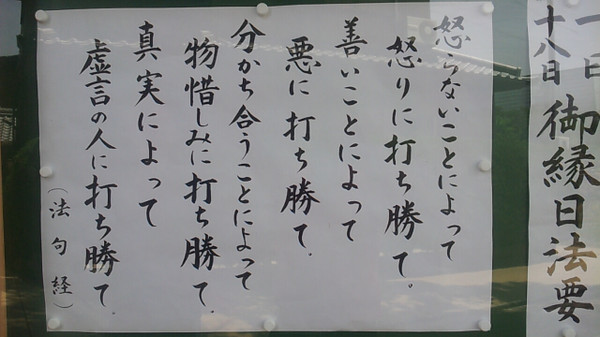 一日
十八日
御縁日法要
怒らないことによって
怒りに打ち勝て。
善いことによって
悪に打ち勝て。
分かち合うことによって
物惜しみに打ち勝て。
真実によって
虚言の人に打ち勝て。
（法句経）